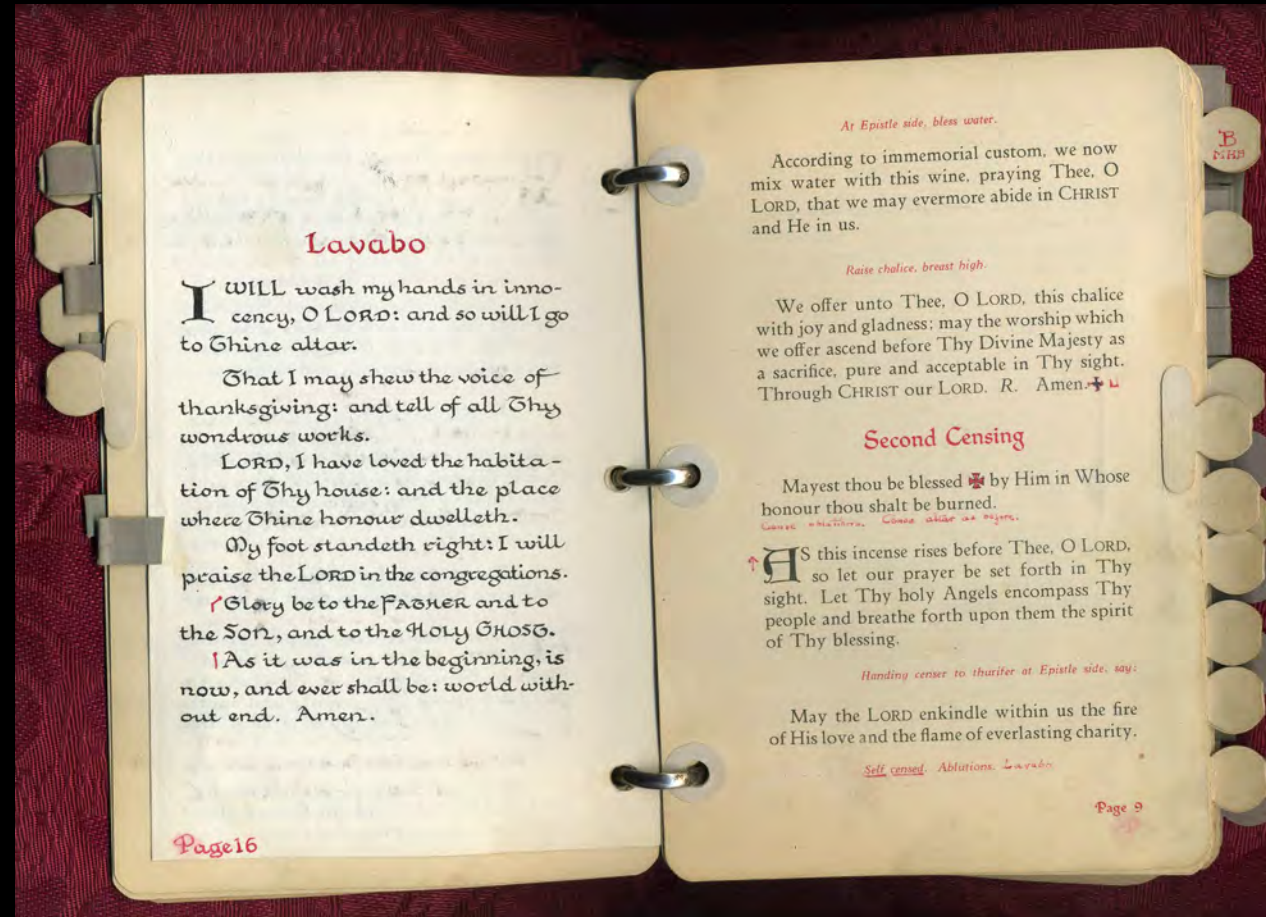 Lavabo
I WILL wash my hands in inno-
cency, O LORD: and so will I go
to Thine altar.
That I may shew the voice of
thanksgiving: and tell of all Thy
wondrous works.
LORD, I have loved the habita-
tion of Thy house: and the place
where Thine honour dwelleth.
My foot standeth right: I will
praise the LORD in the congregations.
Glory be to the FATHER and to
the SON, and to the HOLY GHOST.
As it was in the beginning, is
now, and ever shall be: world with-
out end. Amen.
Page 16
At Epistle side, bless water.
According to immemorial custom, we now
mix water with this wine, praying Thee, O
LORD, that we may evermore abide in CHRIST
and He in us.
Raise chalice, breast high.
We offer unto Thee, O LORD, this chalice
with joy and gladness; may the worship which
we offer ascend before Thy Divine Majesty as
a sacrifice, pure and acceptable in Thy sight.
Through CHRIST our LORD. R. Amen. ✠
Second Censing
Mayest thou be blessed ✠ by Him in Whose
honour thou shalt be burned.
Cense oblations. Cense altar as before.
↑ AS this incense rises before Thee, O LORD,
so let our prayer be set forth in Thy
sight. Let Thy holy Angels encompass Thy
people and breathe forth upon them the spirit
of Thy blessing.
Handing censer to thurifer at Epistle side, say:
May the LORD enkindle within us the fire
of His love and the flame of everlasting charity.
Self censed. Ablutions. Lavabo
Page 9
B
MHB